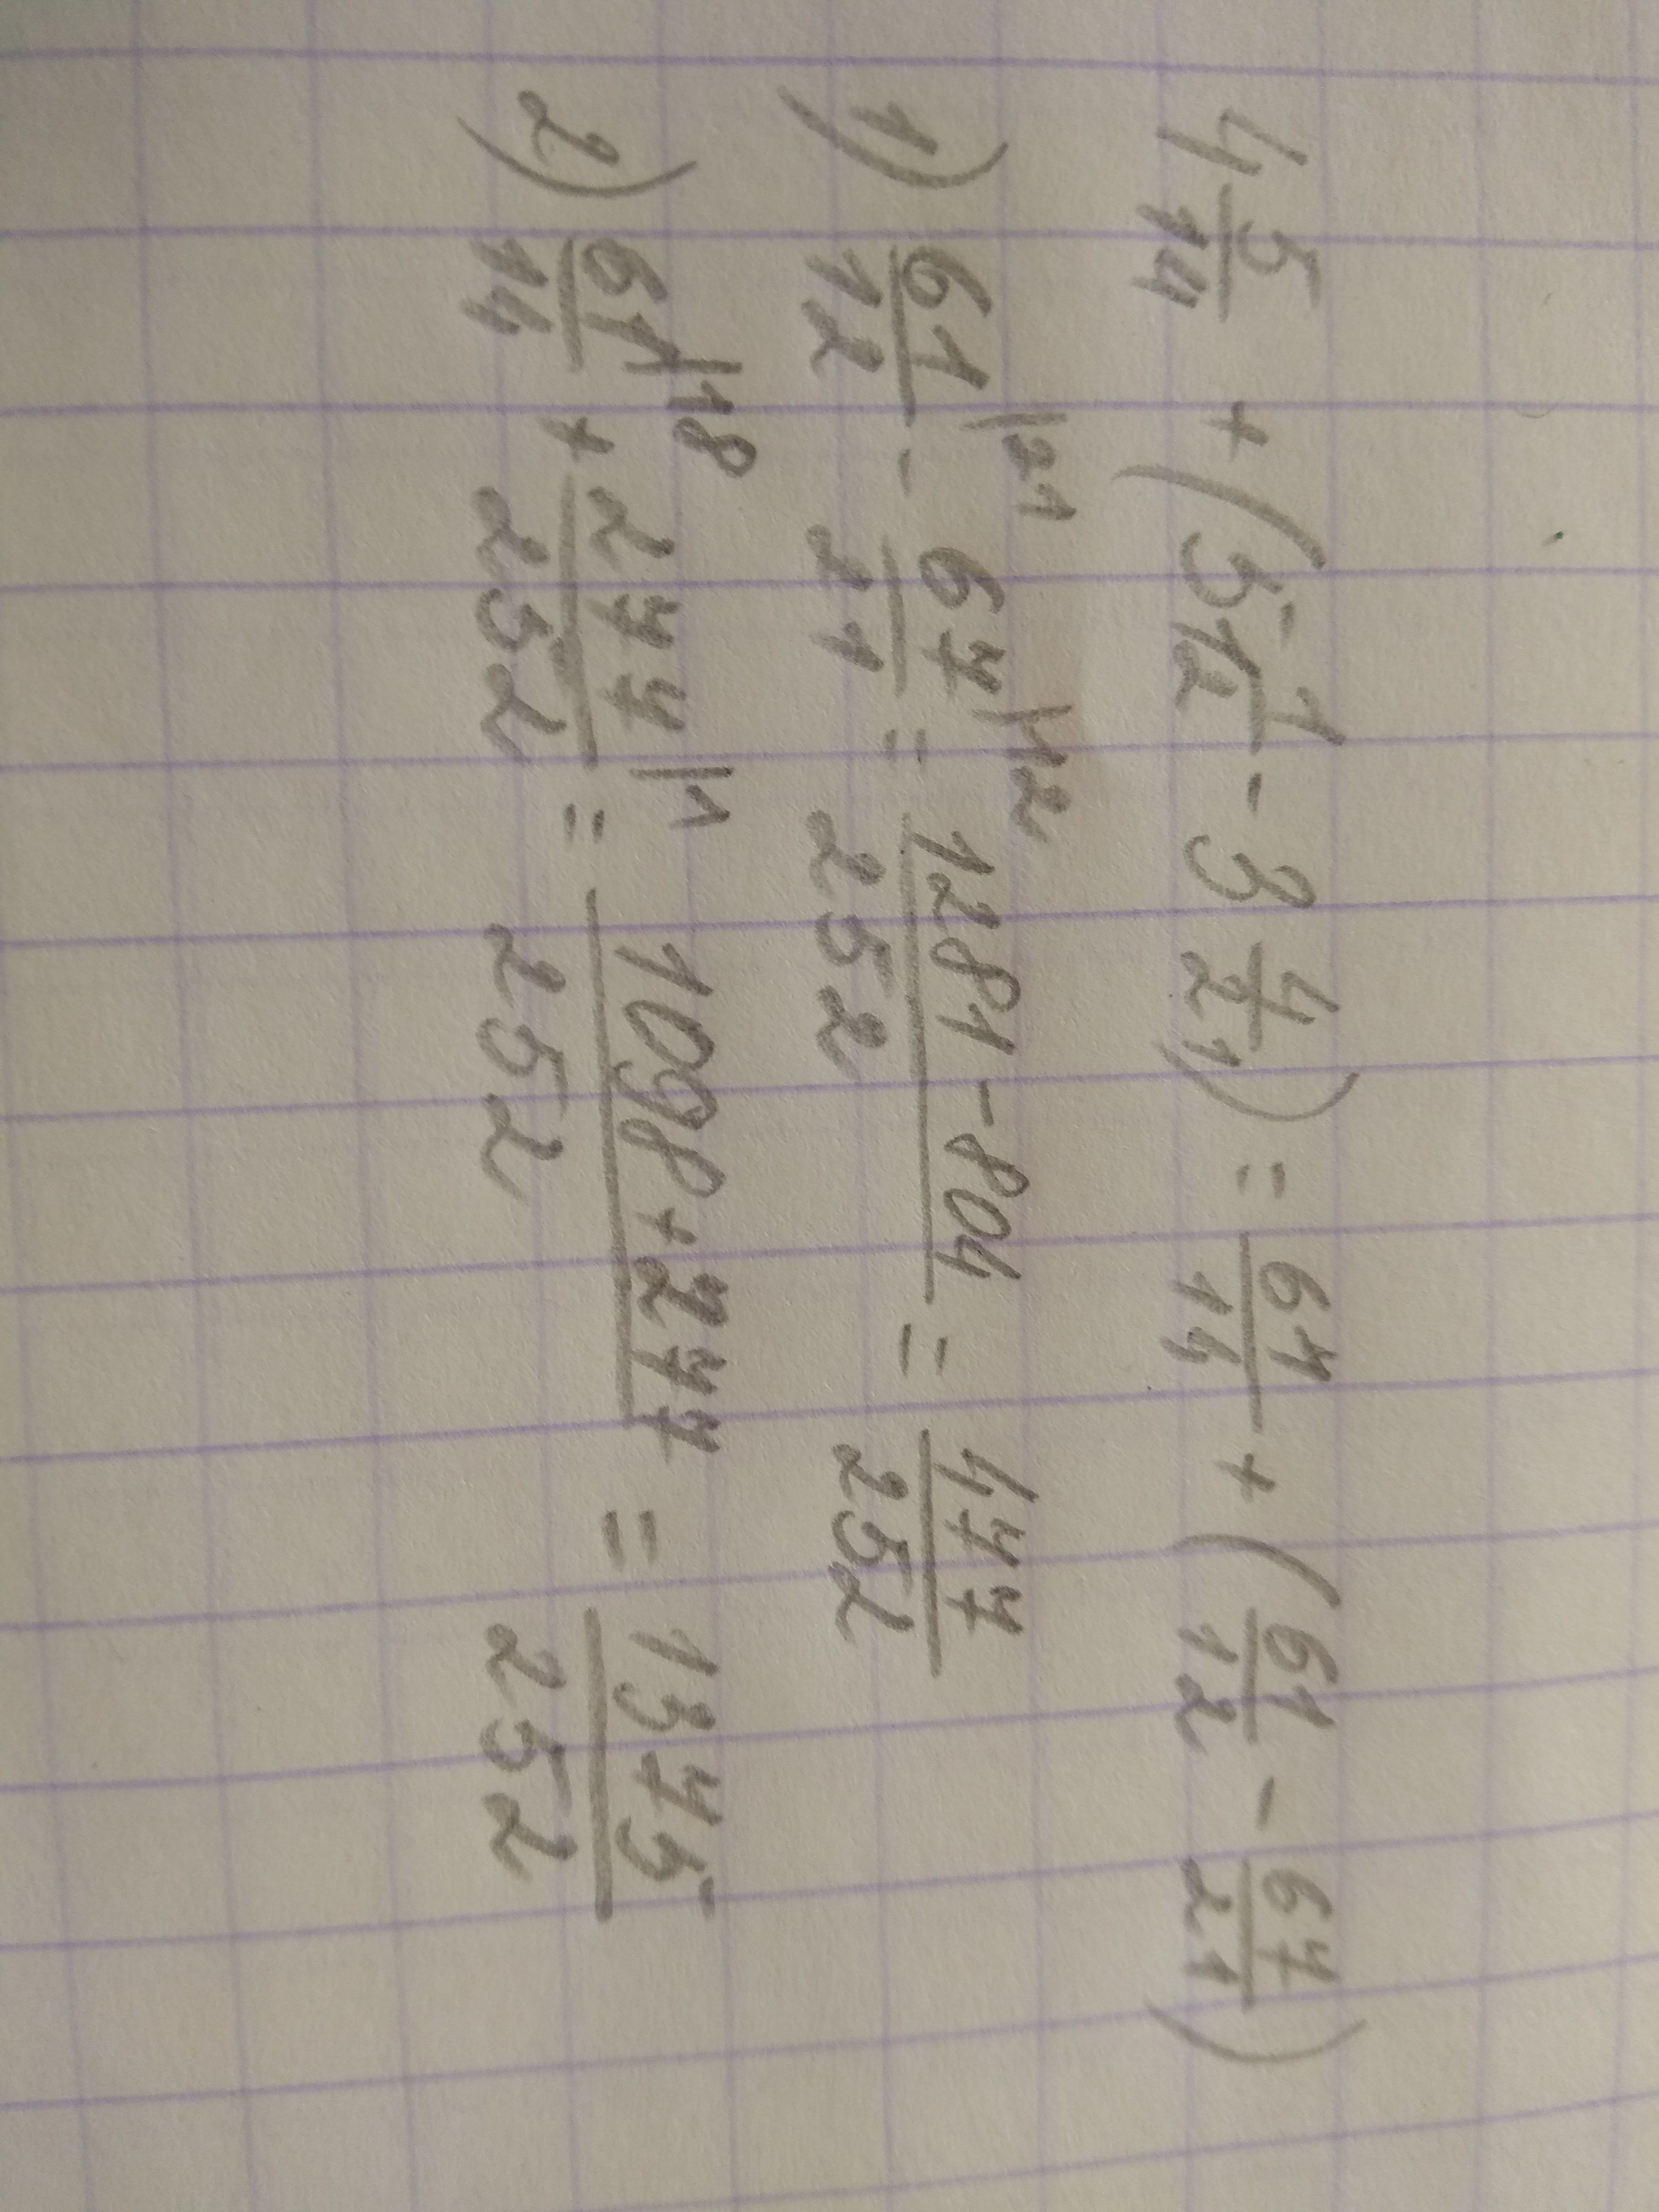 4 5/14 + (5 1/12 - 3 4/21) = 61/14 + (61/12 - 67/21)
1) 61/12 |21 - 67/21 |12 = 1281 - 804/252 = 477/252
2) 61/14 |18 + 277/252 |1 = 1098 + 277/252 = 1375/252